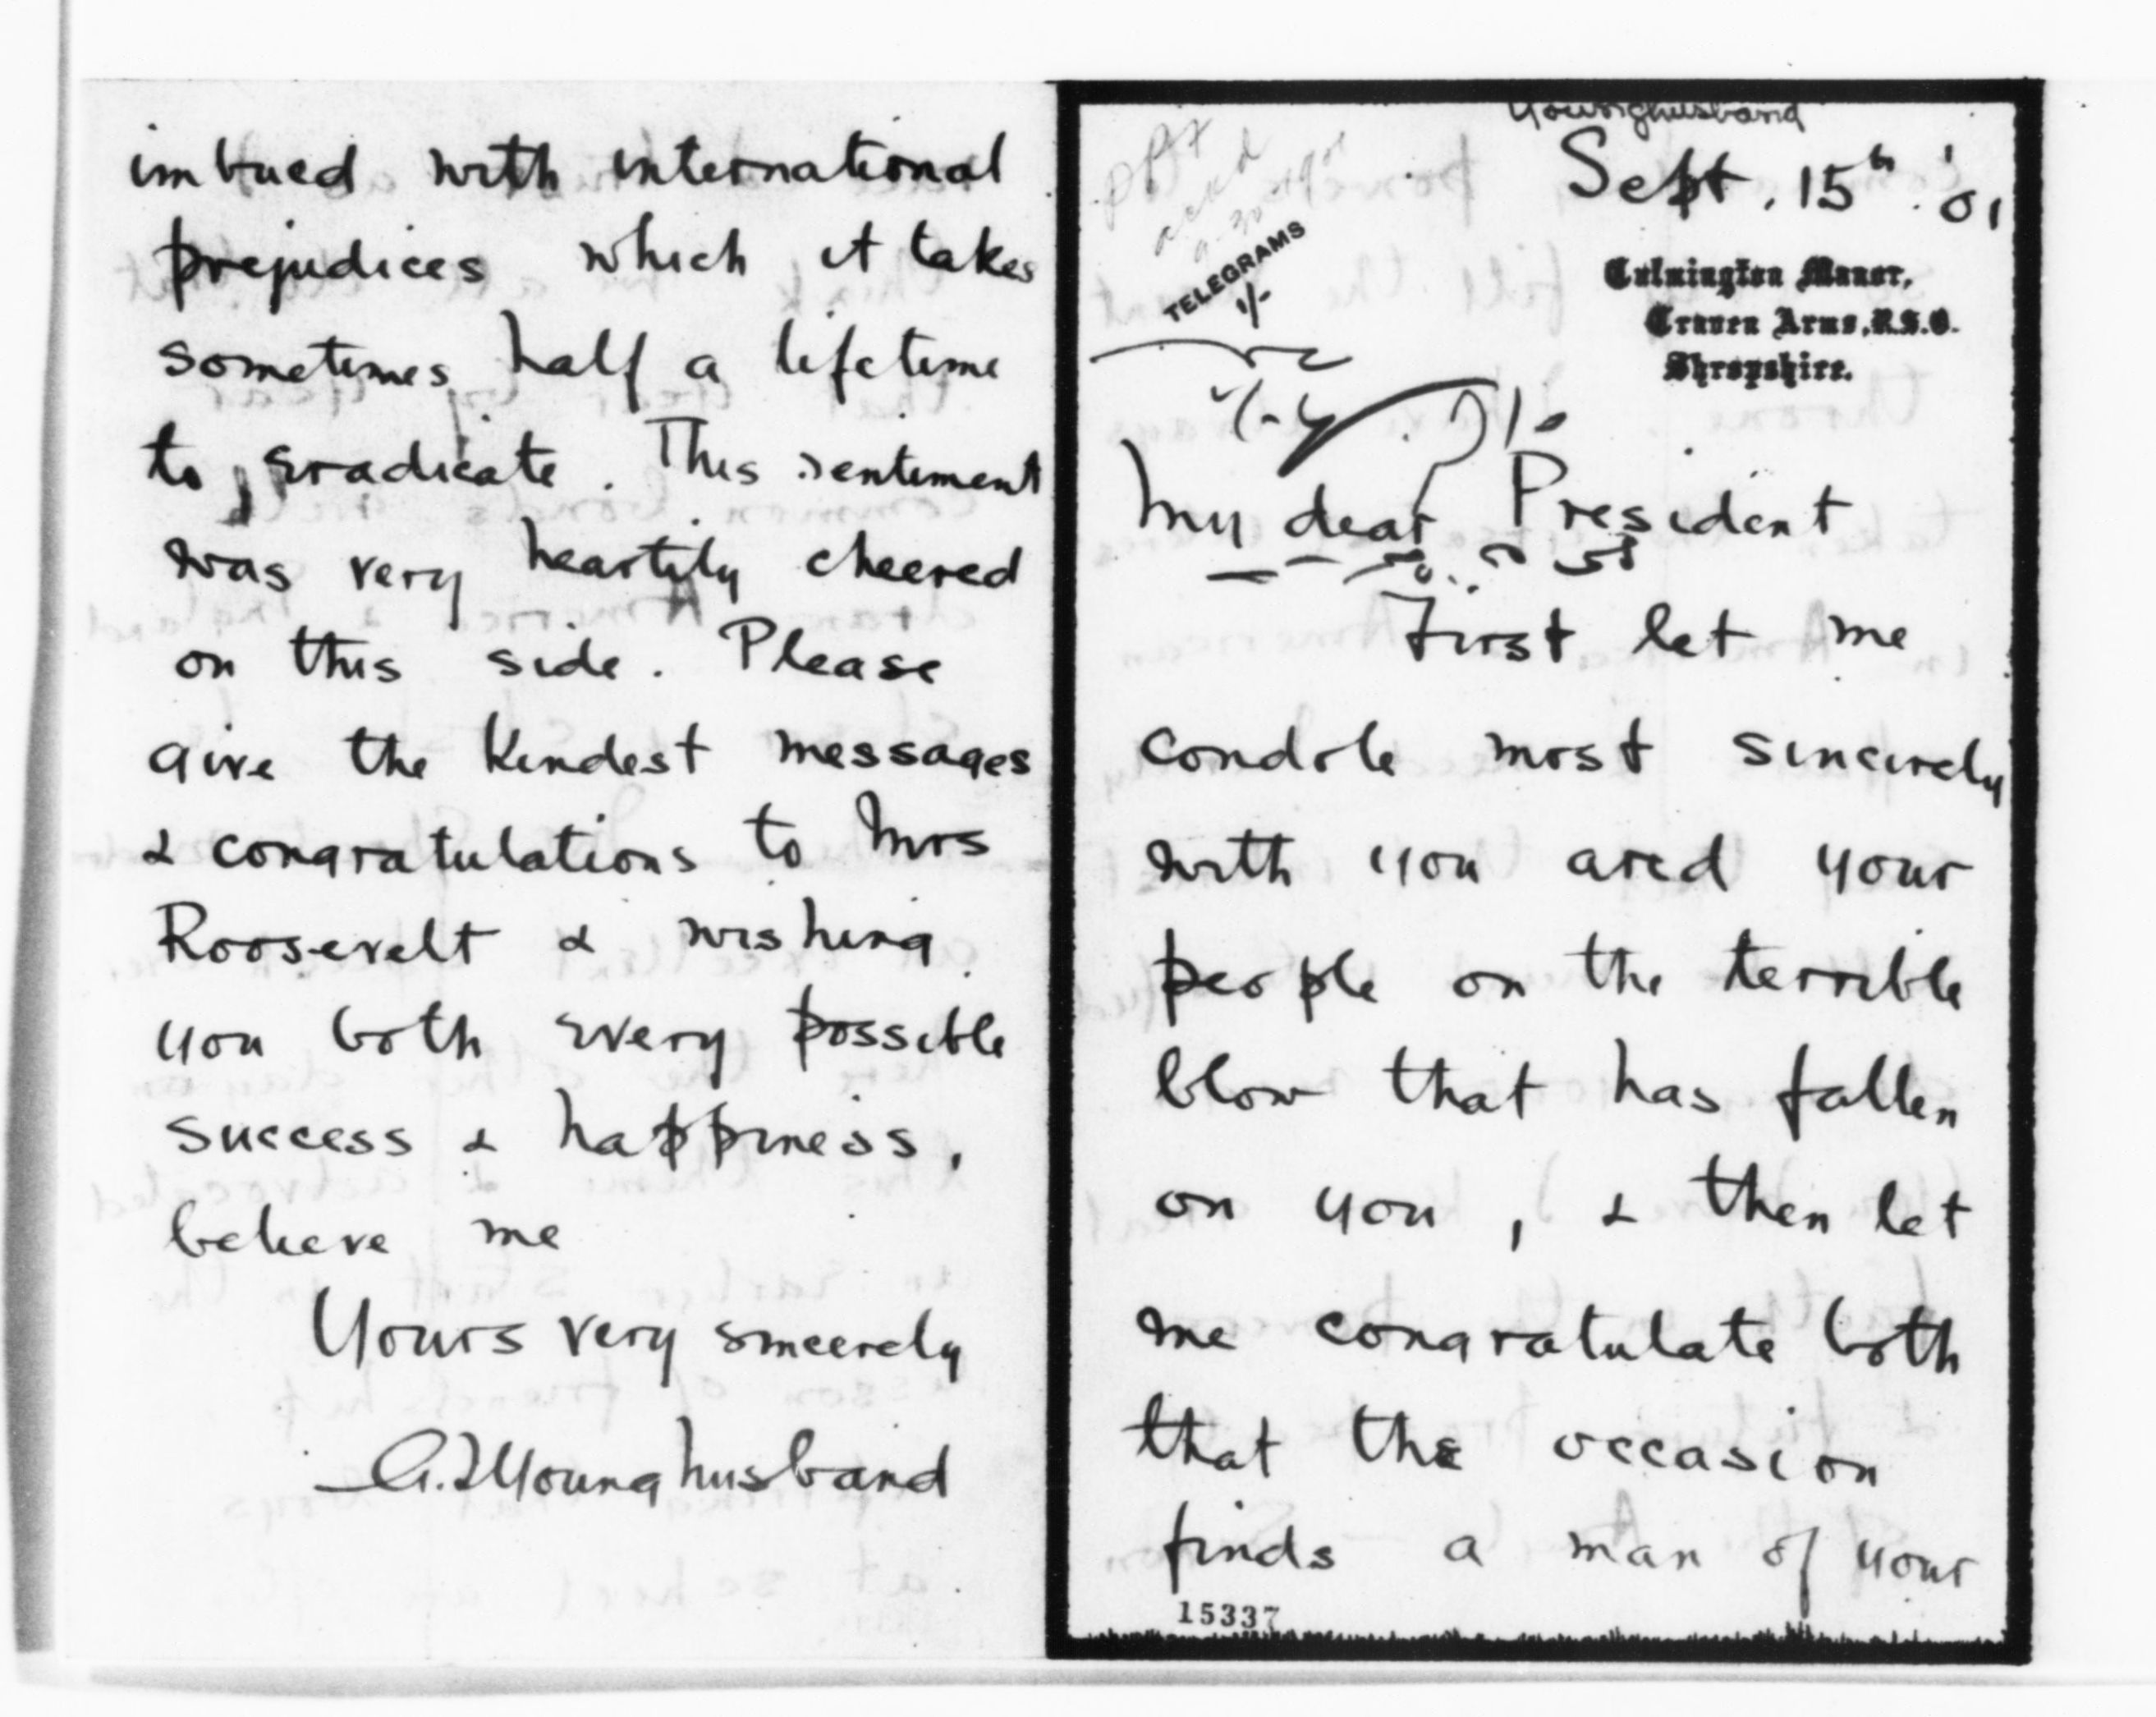 imbued with international
prejudices which it takes
sometimes half a lifetime
to eradicate. This sentiment
was very heartily cheered
on this side. Please
give the kindest messages
& congratulations to Mrs
Roosevelt & wishing
you both every possible
success & happiness,
believe me
Yours very sincerely
G. J. Younghusband
Younghusband
Sept. 15th '01
Culmington Manor,
Craven Arms, R.S.O.
Shropshire.
ackd
TELEGRAMS
My dear President
First let me
condole most sincerely
with you and your
people on the terrible
blow that has fallen
on you, & then let
me congratulate both
that the occasion
finds a man of your
15337